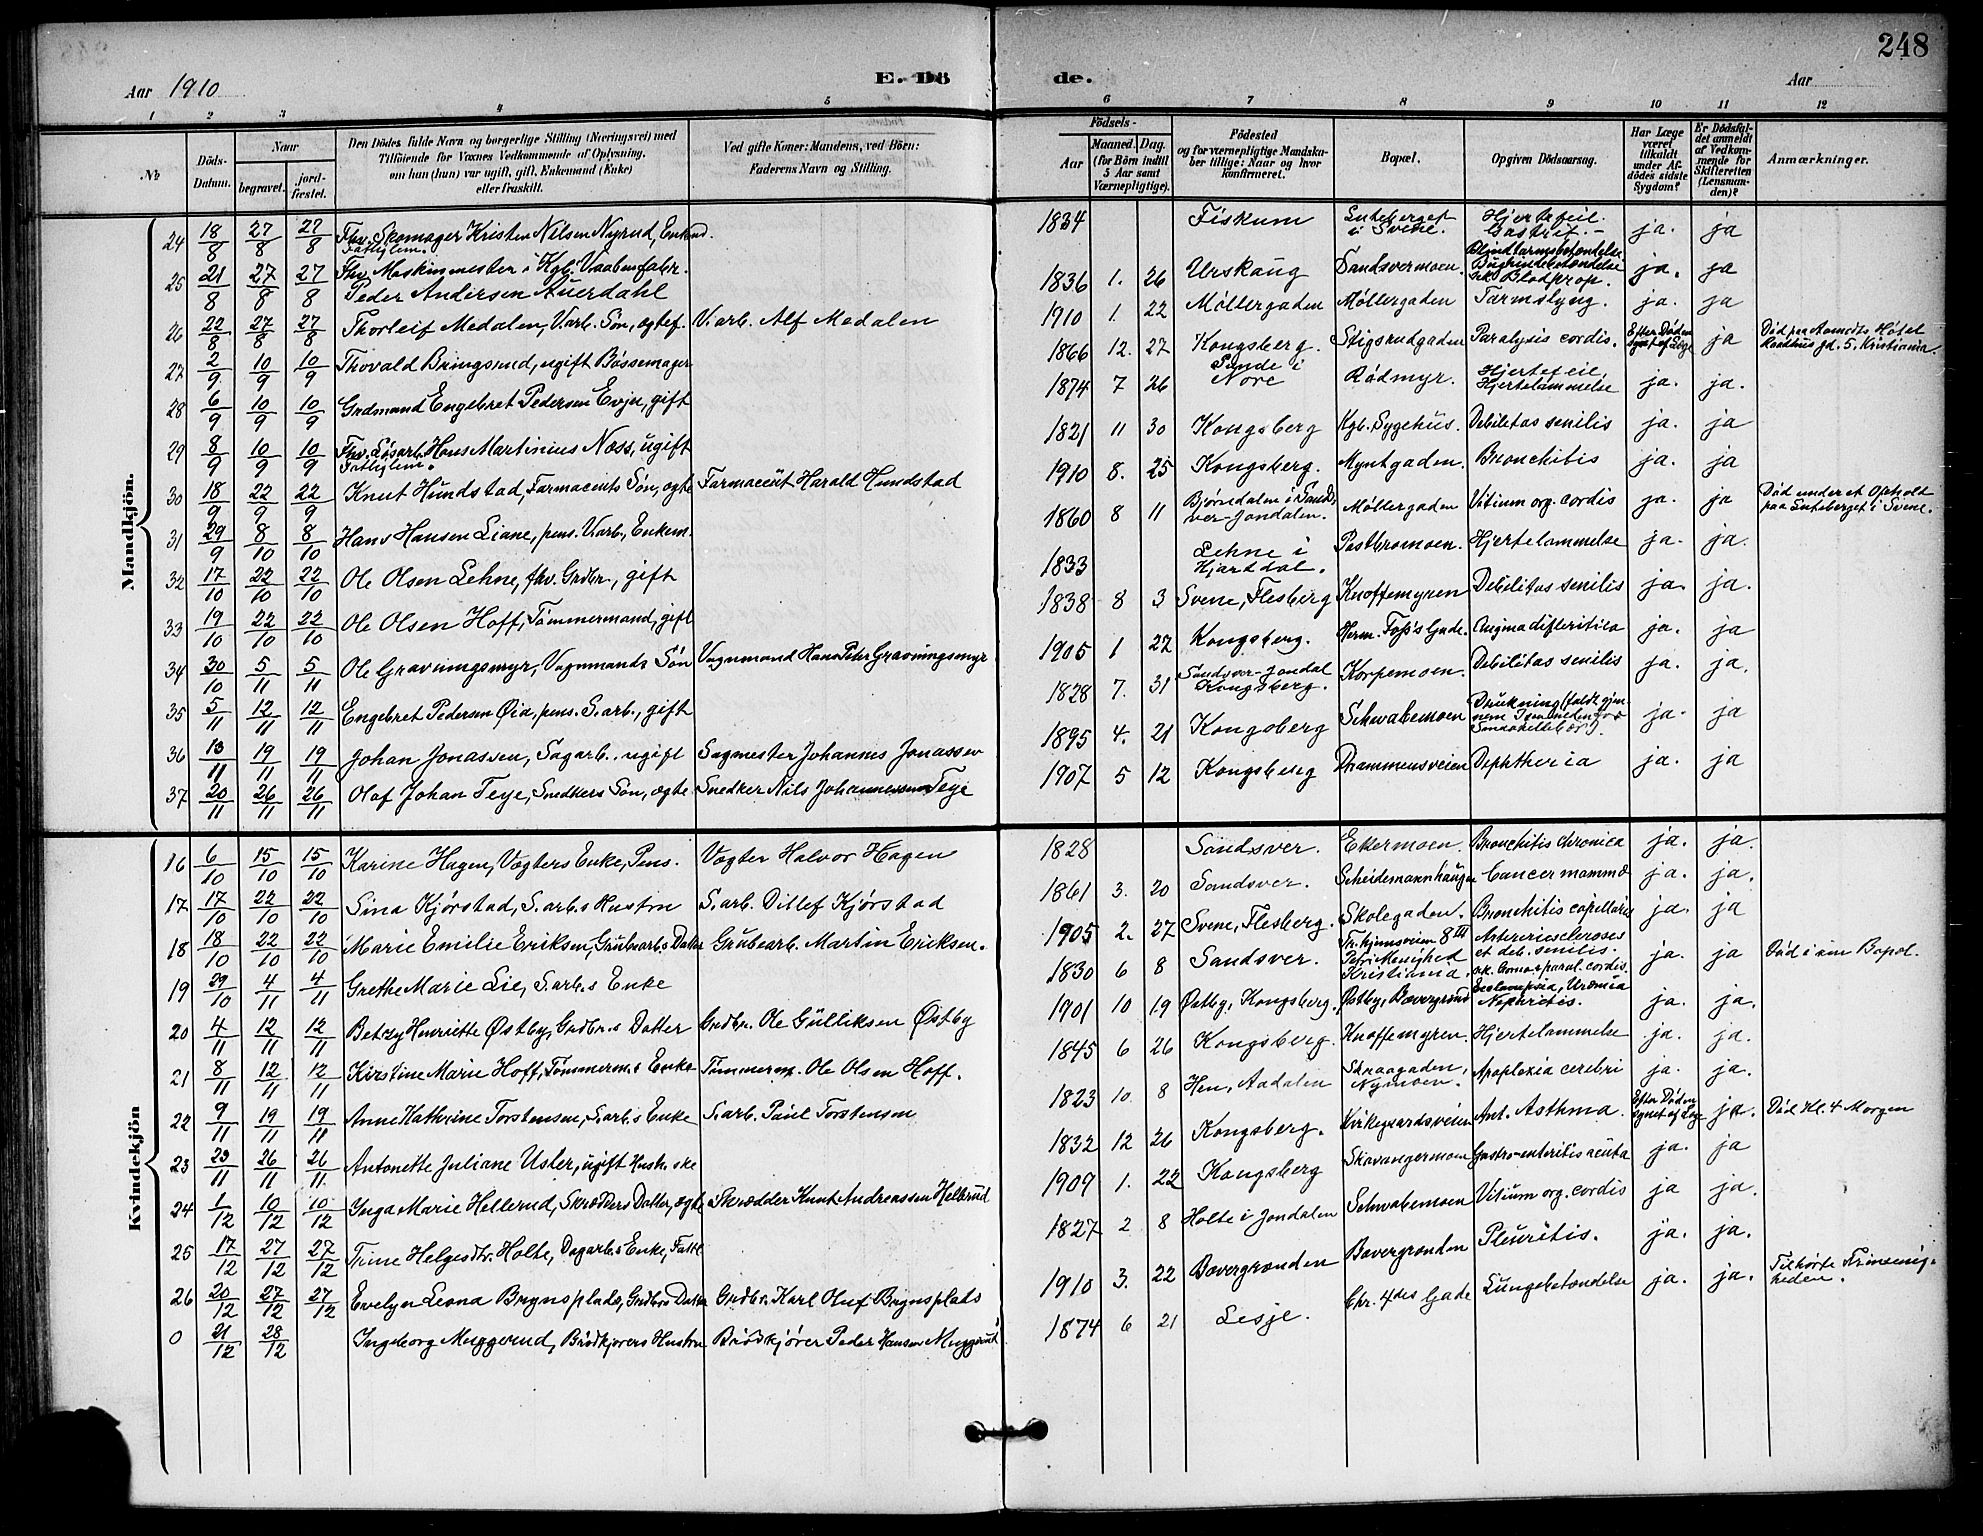 248
Aar 1910 E. Dö de. Aar
1 2 3 4 5 6 7 8 9 10 11 12
No
Döds-Datum.
Naar
begravet.
jord-fæstet.
Den Dödes fulde Navn og borgerlige Stilling (Næringsvei) med
Tilföiende for Voxnes Vedkommende af Oplysning,
om han (hun) var ugift, gift, Enkemand (Enke)
eller fraskilt.
Ved gifte Koner: Mandens, ved Börn:
Faderens Navn og Stilling.
Födsels-
Aar
Maaned. Dag.
(for Börn indtil
5 Aar samt
Værnepligtige).
Födested
og for værnepligtige Mandska-
ber tillige: Naar og hvor
konfirmeret.
Bopæl.
Opgiven Dödsaarsag.
Har Læge
været
tilkaldt
under Af-
dödes sidste
Sygdom?
Er Dödsfal-
det anmeldt
af Vedkom-
mende for
Skifteretten
(Lensman-
den)?
Anmærkninger.
Mandkjön.
24 18/8 27/8 27/8 Fhv. Skomager Kristen Nilsen Nyrud, Enkmd. Fattiglem. 1834 Fiskum i Svene. Hjertefeil. Gastrit. ja. ja
25 21/8 27/8 27/8 Fhv. Maskinmester i Kgb. Vaabenfabr. Peder Andersen Auerdahl 1836 1. 26 Urskaug Sandsvermoen. Blindtarmsbetændelse Bughindebetændelse Blodprop. ja. ja
26 22/8 27/8 27/8 Thorleif Medalen, V.arb. Søn, ægtef. V.arb. Alf Medalen 1910 1 22 Møllergaden Møllergaden Tarmslyng. ja. ja
27 2/9 10/9 10/9 Thovald Bringsrud, ugift Bøssemager 1866 12. 27 Kongsberg. Stigsrudgaden Paralysis cordis. Efter Døden synet af Læge ja Død paa Aamodts Hotel Raadhusgd. 5. Kristiania.
28 6/9 10/9 10/9 Grdmand Engebret Pedersen Evju, gift 1874 7 26 i Nore Rødmyr. Hjertefeil, Hjertelammelse ja. ja.
29 8/9 10/9 10/9 Fhv. Løsarb. Hans Martinius Næss, ugift Fattiglem. 1821 11 30 Kongsberg Kgb. Sygehus. Debilitas senilis ja. ja
30 18/9 22/9 22/9 Knut Hundstad, Farmaceuts Søn, ægte Farmaceüt Harald Hundstad 1910 8. 25 Kongsberg. Myntgaden. Bronchitis ja. ja
31 29/9 8/10 8/10 Hans Hansen Liane, pens. V.arb., Enkem. 1860 8 11 Bjørndalen i Sandsver-Jondalen. Møllergaden Vitium org. cordis ja. ja Død under et Ophold paa i Svene.
32 17/10 22/10 22/10 Ole Olsen Lehne, fhv. Grdbr., gift 1833 Lehne i Hjartdal. Postbromoen. Hjertelammelse ja. ja.
33 19/10 22/10 22/10 Ole Olsen Hoff, Tømmermand, gift 1838 8 3 Svene, Flesberg Knoffemyren Debilitas senilis ja. ja.
34 30/10 5/11 5/11 Ole Gravningsmyr, Vognmands Søn Vognmand Hans Peter Gravningsmyr 1905 1 22 Kongsberg. Herm. Foss's Gade. Angina difteritica ja. ja
35 5/11 12/11 12/11 Engebret Pedersen Øia, pens. S.arb., gift 1828 7. 31 Sandsver-Jondal Kongsberg. Korpemoen. Debilitas senilis ja. ja.
36 13/11 19/11 19/11 Johan Jonassen, Sagarb., ugift Sagmester Johannes Jonassen 1895 4. 21 Kongsberg Schwabemoen Drukning (faldt gjennem Isen ja. ja
37 20/11 26/11 26/11 Olaf Johan Teye, Snedkers Søn, ægte Snedker Nils Johannessen Teye 1907 5 12 Kongsberg Drammensveien Diphtheria ja. ja
Kvindekjön
16 6/10 15/10 15/10 Karine Hagen, Vogters Enke, Pens. Vogter Halvor Hagen 1828 Sandsver. Ekermoen. Bronchitis chronica ja. ja.
17 17/10 22/10 22/10 Sina Kjørstad, S.arb.s Hustru S.arb. Ditlef Kjørstad 1861 3. 20 Sandsver. Scheidemannhaugen Cancer mammæ ja. ja.
18 18/10 22/10 22/10 Marie Emilie Eriksen, Grubearb.s Datter Grubearb. Martin Eriksen. 1905 2. 27 Svene, Flesberg. Skolegaden. Bronchitis capillaris ja. ja
19 29/10 4/11 4/11 Grethe Marie Lie, S.arb.s Enke 1830 6 8 Sandsver. Tr.hjemsveien 8 III Petri Menighed Kristiania. Arteriesclerosis et deb. senilis. paral. cordis. ja. ja Død i sin Bopæl.
20 4/11 12/11 12/11 Betzy Henriette Østby, Grdbr.s Datter Grdbr. Ole Gülliksen Østby 1901 10 19 Østby, Kongsberg. Østby, Bævergrænd Eclampsia, Uræmia Nephritis. ja. ja.
21 8/11 12/11 12/11 Kirstine Marie Hoff, Tømmerm.s Enke Tømmerm. Ole Olsen Hoff. 1845 6 26 Kongsberg. Knoffemyren. Hjertelammelse ja. ja.
22 9/11 19/11 19/11 Anne Kathrine Torstensen, S.arb.s Enke S.arb. Paul Torstensen 1823 10. 8 Hen, Aadalen Skraagaden, Nymoen. Apoplexia cerebri ja. ja.
23 23/11 26/11 26/11 Antonette Juliane Usler, ugift Hush.ske 1832 12 26 Kongsberg. Kirkegaardsveien Ant. Asthma. Efter Døden synet af Læge ja. Død Kl. 4 Morgen
24 1/12 10/12 10/12 Inga Marie Hellerud, Skrædders Datter, ægte Skrædder Knut Andreassen Hellerud 1909 1. 22 Kongsberg Skavangermoen Gastro-enteritis acuta ja. ja
25 17/12 27/12 27/12 Trine Helgesdtr. Holte, Dagarb.s Enke, Fattl. 1827 2 8 Holte i Jondalen Schwabemoen Vitium org. cordis ja ja.
26 20/12 27/12 27/12 Evelyn Leona Brynsplads, Grdbr.s Datter Grdbr. Karl Oluf Brynsplads 1910 3. 22 Bævergrænden Bævergrænden Pleuritis. ja. ja.
0 21/12 28/12 Ingeborg Muggerud, Brødkjørers Hustru Brødkjører Peder Hansen Muggerud 1874 6 21 Lesje. Chr. 4des Gade Lungebetændelse ja. ja. Tilhørte Frimenigheden.